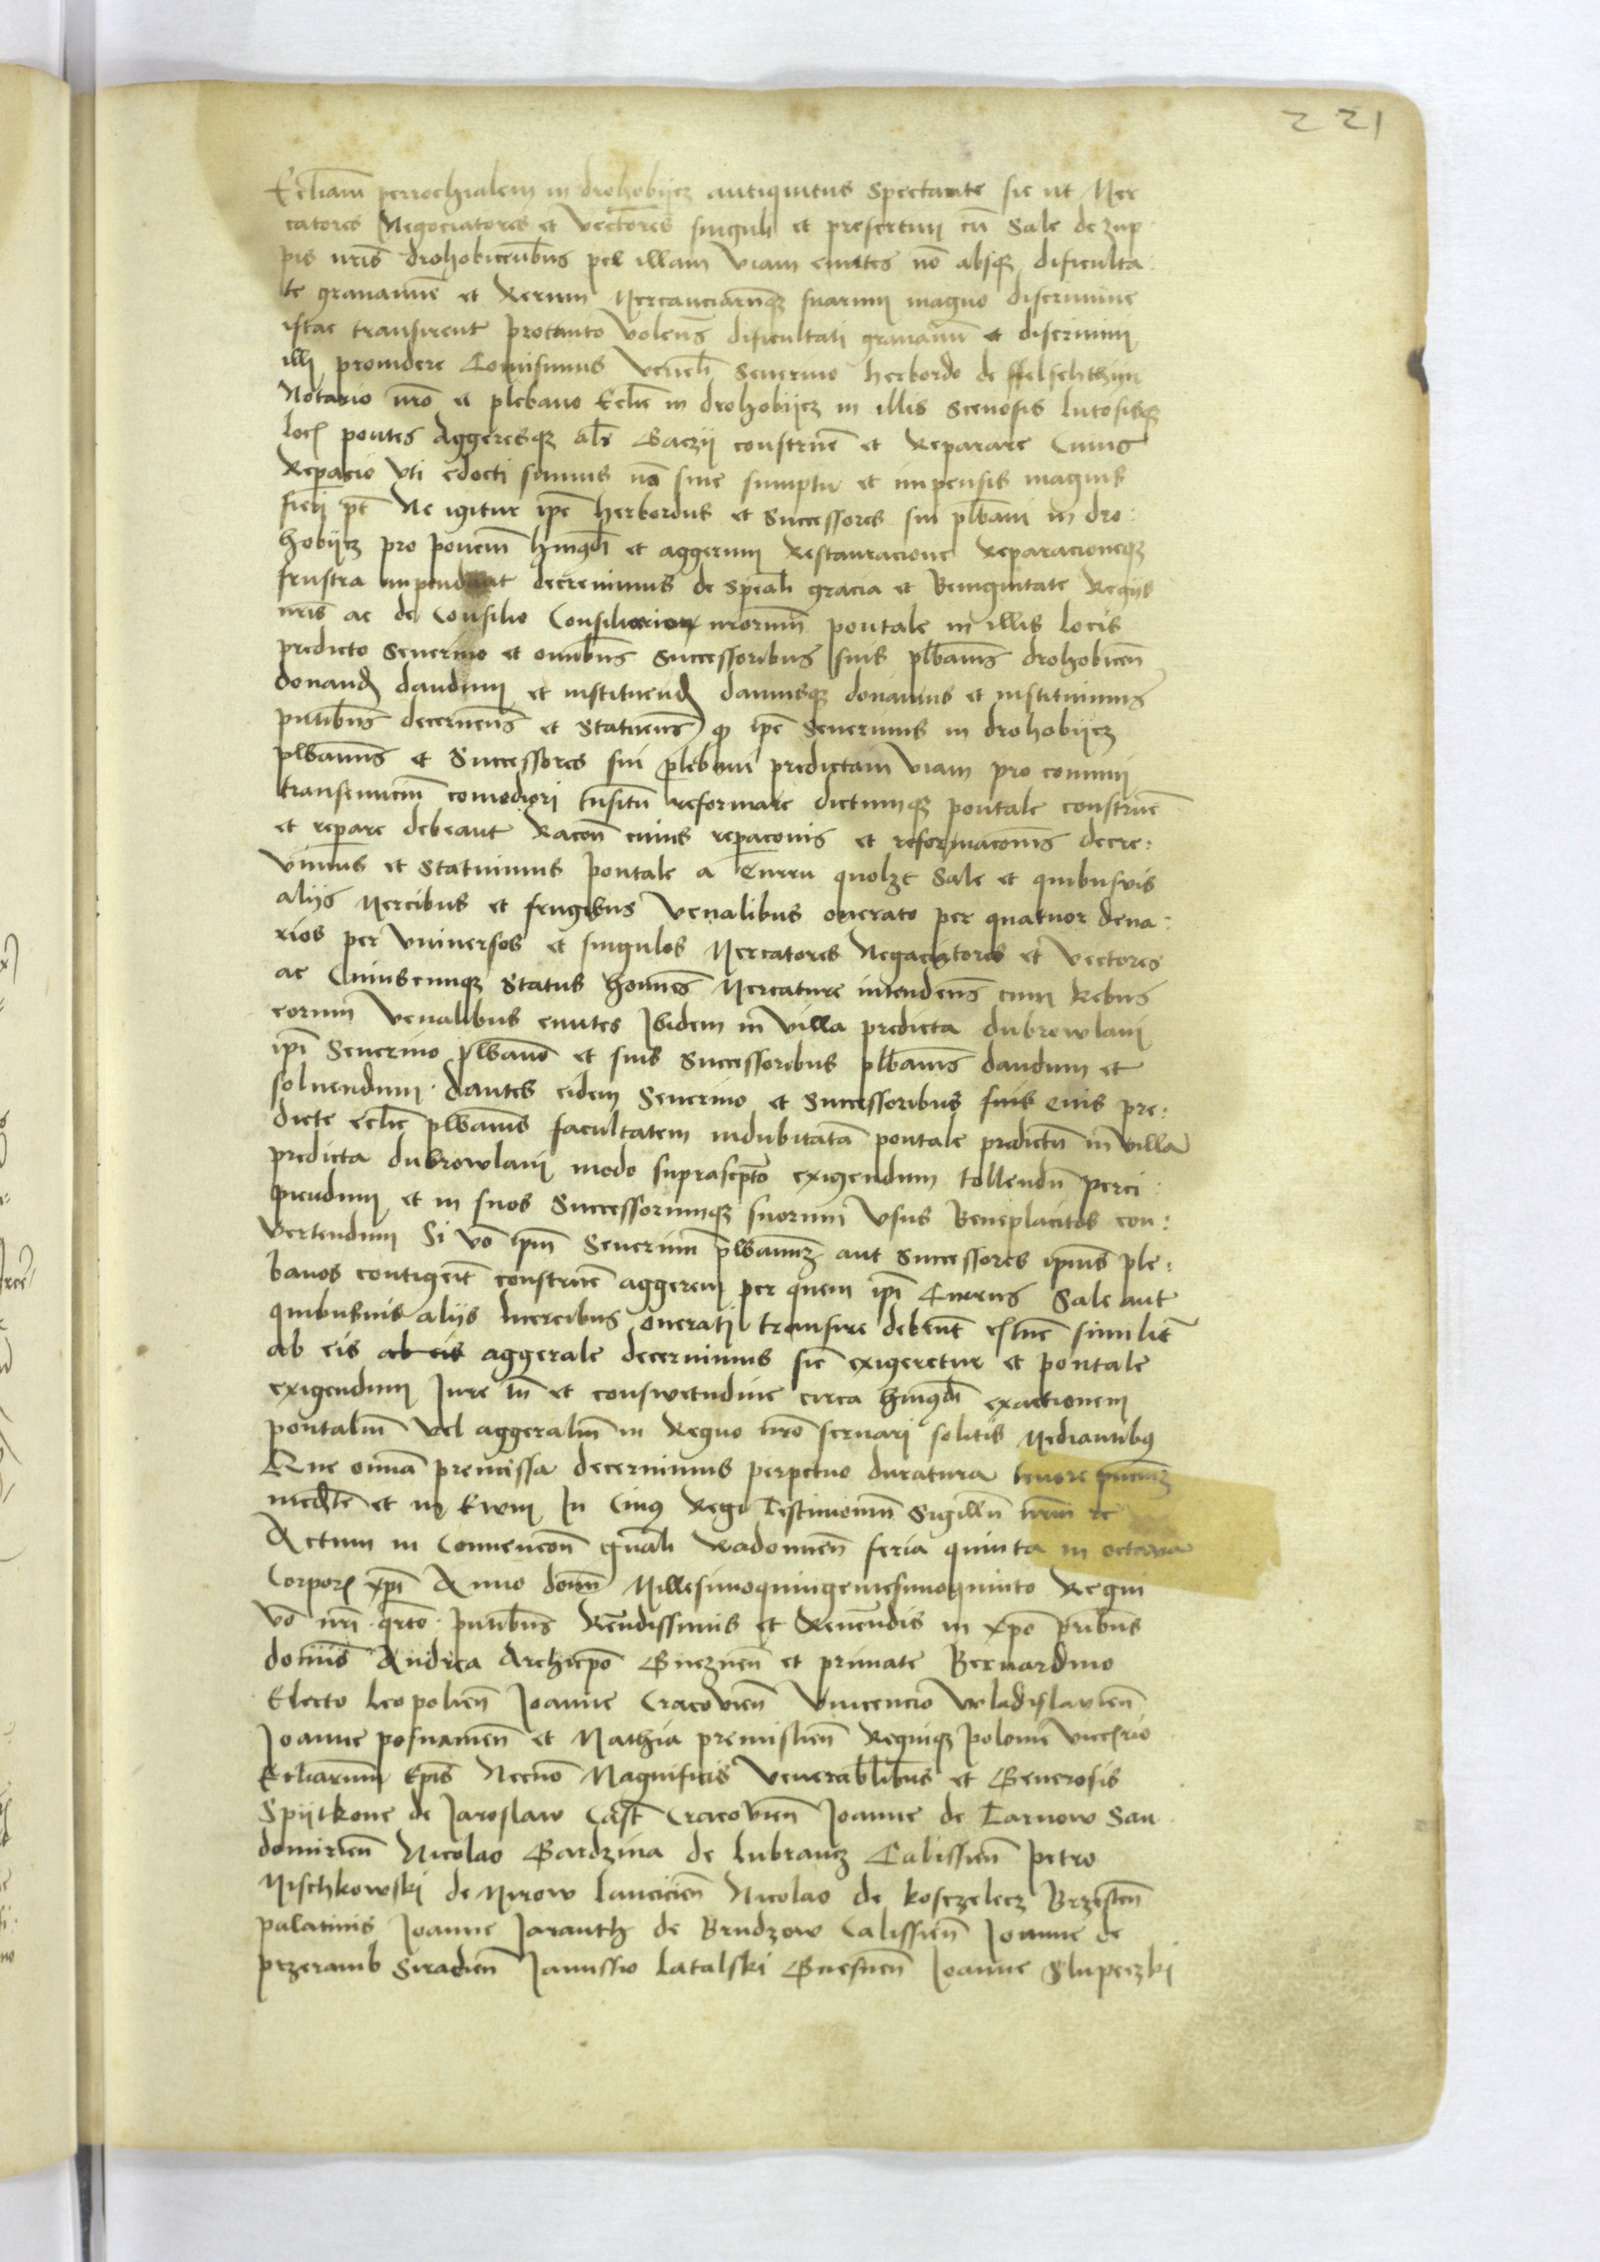 221
Eccliam perrochialem in drohobijcz antiquitus spectante sic ut Mer
catores Negociatores et Vectores singuli et presertim cu Sale de zup
pis nris drohobicensibus per illam viam euntes no absque dificulta
te gravamine et Rerum Mercanciarumque suarum magno discrimine
istac transirent protanto volens dificultati gravamini et discrimini
illi providere Comisimus Venerli Severino herbordo de ffelschthyn
Notario nro et plebano Ecclie in drohobijcz in illis scenosis lutosisque
locis pontes Aggeresque als Gaczij construere et Reparare Cuius
Reparacio uti edocti sumus no sine sumptu et impensis magnis
fieri pt Ne igitur ipse herbordus et Successores sui plbani in dro:
hobijcz pro poncium hmodi et aggerum Restauracione Reparacioneque
frustra impendant decrevimus de speali gracia et Benignitate Regijs
nris ac de Consilio Consiliariorum nrorum pontale in illis Locis
predicto Severino et omibus Successoribus suis plbanis drohobicen
donand dandum et instituend damusque donamus et instituimus
pntibus decernens et Statuens q ipse Severinus in drohobijcz
plbanus et Successores sui plebani predictam viam pro comuni
transeuncium comodiori transitu reformare dictumque pontale construere
et reparare debeant Racone cuius reparaconis et reformaconis decre:
vimus et Statuimus pontale a Curru quolzt Sale et quibusvis
alijs Mercibus et frugibus Venalibus onerato per quatuor dena:
rios per Universos et singulos Mercatores Negaciatores et Vectores
ac Cuiuscunque Status homines Mercature intendens cum Rebus
eorum Venalibus euntes Ibidem in villa predicta dubrowlani
ipi Severino plbano et suis Successoribus plbanis dandum et
solvendum. Dantes eidem Severino et Successoribus suis eius pre:
dicte ecclie plbanis facultatem indubitatam pontale predictum in villa
predicta dubrowlani modo suprascpto exigendum tollendum perci
piendum et in suos Successorumque suorum Usus Beneplacitos con:
vertendum Si vo ipm Severinum plbanum aut Successores ipius ple:
banos contigerit construere aggerem per quem ipi Currus Sale aut
quibusvis alijs Mercibus onerati transire debent extunc similiter
ab eis ab eis aggerale decernimus sic exigeretur et pontale
exigendum Jure tn et conswetudine circa hmodi exactionem
pontalium vel aggeralium in Regno nro servari solitis Mediantibus
Que omnia premissa decernimus perpetuo duratura tenore pncium
mediante et in Ewm In Cuius Rei Testimonium Sigillum nrum rc
Actum in Convencone gnali Radomien feria quinta in octava
Corporis xpi Anno domini Millesimoquingentesimoquinto Regni
vo nri qrto pntibus Rendissimis et Reverendis in xpo pribus
dominis Andrea Archiepo Gneznen et primate Bernardino
Electo Leopolien Joanne Cracovien Vincencio Wladislavien
Joanne posnanien et Mathia premislien Regnique polonie vicecrio
Eccliarum Epis Necno Magnificis Venerabilibus et Generosis
Spijtkone de Jaroslaw Cast Cracovien Joanne de Tarnow San
domirien Nicolao Gardzina de lubrancz Calissien Petro
Mischkowski de Mirow lancicien Nicolao de koszczelecz Brzesten
palatinis Joanne Jaranth de Brudzow Calissien Joanne de
przeramb Siradien Janussio Latalski Gnesnen Joanne Slupeczki